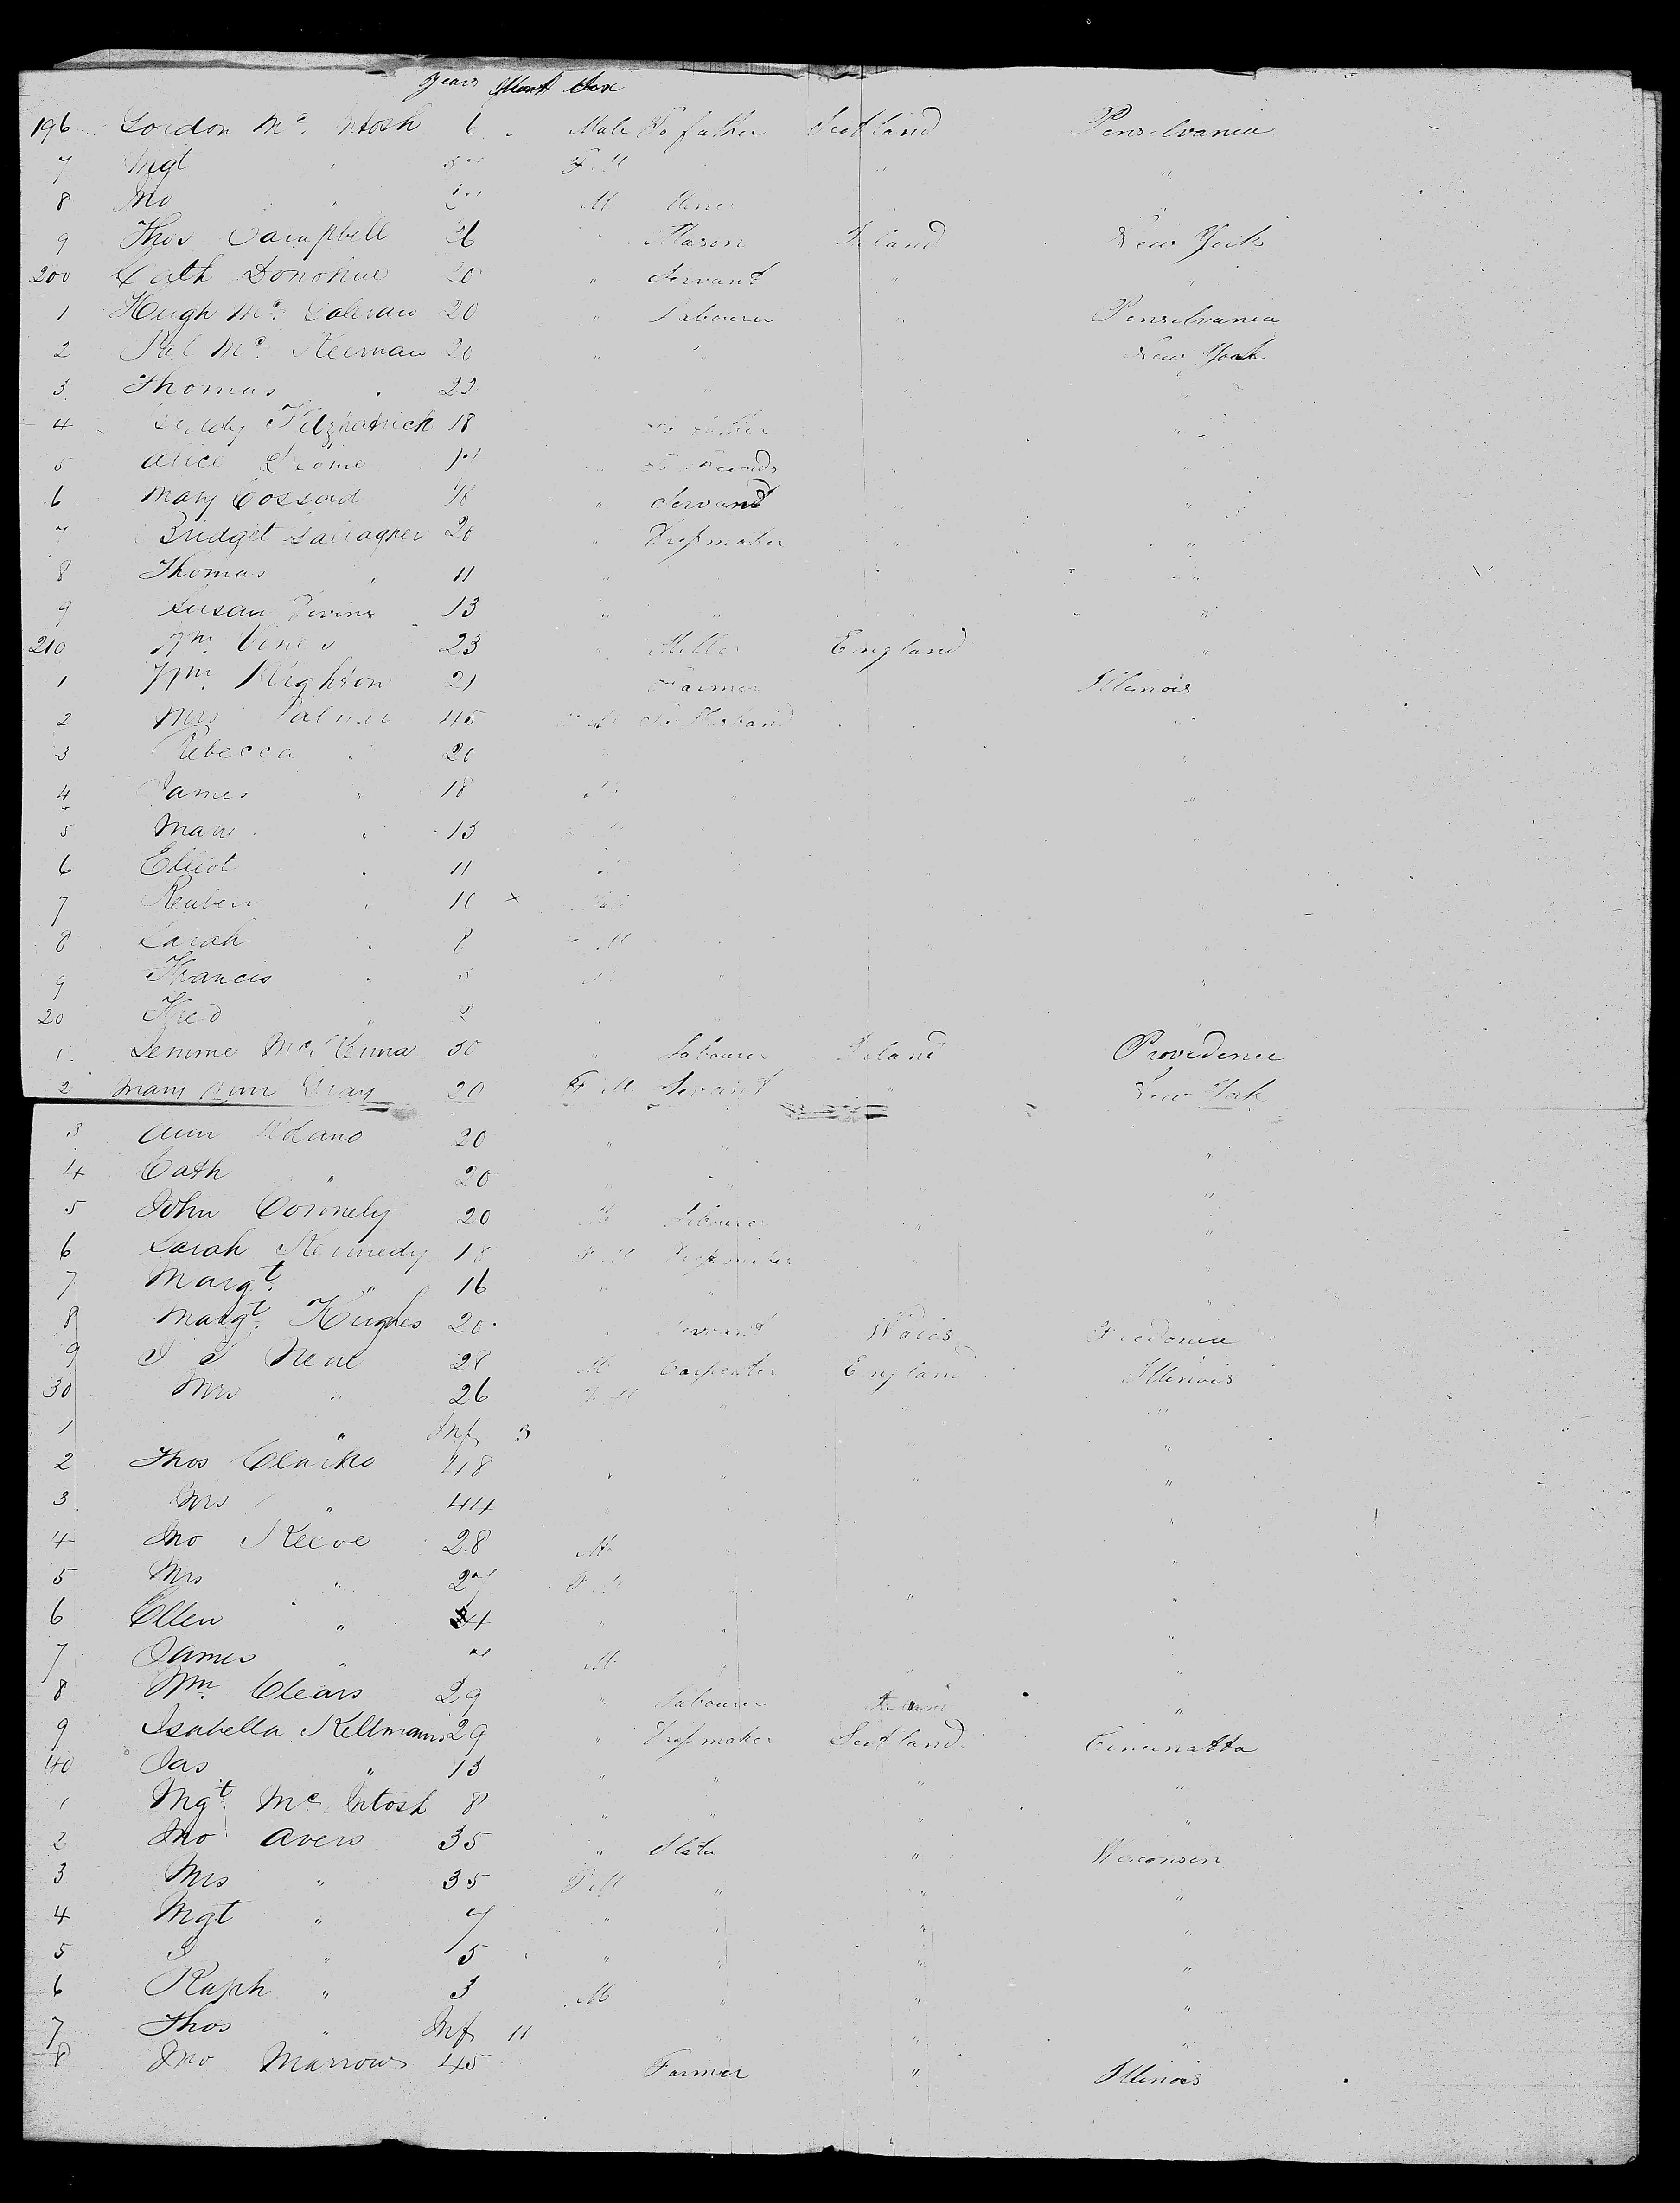 years Mont Sex
196 Gordon Mc Intosh 6 " Male To father Scotland Pensilvania
7 Mgt " F M " "
8 Jno " M Miner "
9 Thos Campbell 26 " Mason Ireland New York
200 Cath Donohue 20 " Servant " "
1 Hugh Mc 20 " Labourer " Pensilvania
2 Pat Mc Keernan 20 " " New York
3 Thomas " 22 " "
4 Fitzpatrick 18 To father "
5 Alice To Friends " "
6 Mary Cossad 18 " Servant "
7 Bridget Gallagher 20 " Dressmaker " "
8 Thomas " 11 " "
9 Susan 13 " " "
210 Wm 23 " Miller England "
1 Wm 21 Farmer Illinois
2 Mrs Palmer 45 F M To Husband "
3 Rebecca " 20 "
4 James " 18 M " "
5 Mary " 15 "
6 Elliot " 11
7 Reuben " 10 x Male
8 Sarah " 8 F M
9 Francis " M " "
20 Fred " 2 "
1 Mc Kenna 30 " Labourer Ireland Providence
2 Mary Ann Gray 20 F M Servant " New York
3 Ann 20 " "
4 Cath " 20 " " "
5 John Connely 20 M Labourer " "
6 Sarah Kennedy 18 F M Dressmaker " "
7 Margt " 16 " " "
8 Margt Hughes 20 Servant Wales Fredonia
9 28 M Carpenter England Illinois
30 Mrs " 26 F M " " "
1 " Inf 3 "
2 Thos Clarke 48 " " " "
3 Mrs " 44 " "
4 Jno Reeve 28 M "
5 Mrs " F M " "
6 Ellen " " " "
7 James " M " " "
8 Wm Clears 29 " Labourer "
9 Isabella Kellmann 29 " Dressmaker Scotland Cincinatta
40 Jas " 13 " " " "
1 Mgt Mc Intosh 8 " " " "
2 Jno Avers 35 " Slater " Wisconsin
3 Mrs " 35 F M " " "
4 Mgt " 7 " " " "
5 " 5 " " " "
6 Raph " 3 M " " "
7 Thos " Inf 11 " " "
8 Jno Marrows 45 Farmer " Illinois